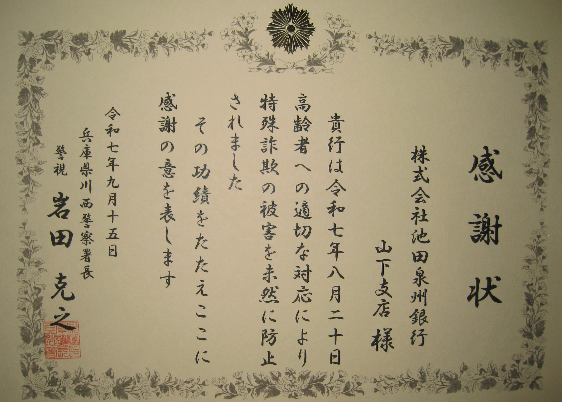 感謝状
株式会社池田泉州銀行
山下支店 様
貴行は令和七年八月二十日
高齢者への適切な対応により
特殊詐欺の被害を未然に防止
されました
その功績をたたえここに
感謝の意を表します
令和七年九月十五日
兵庫県川西警察署長
警視 岩田 克之